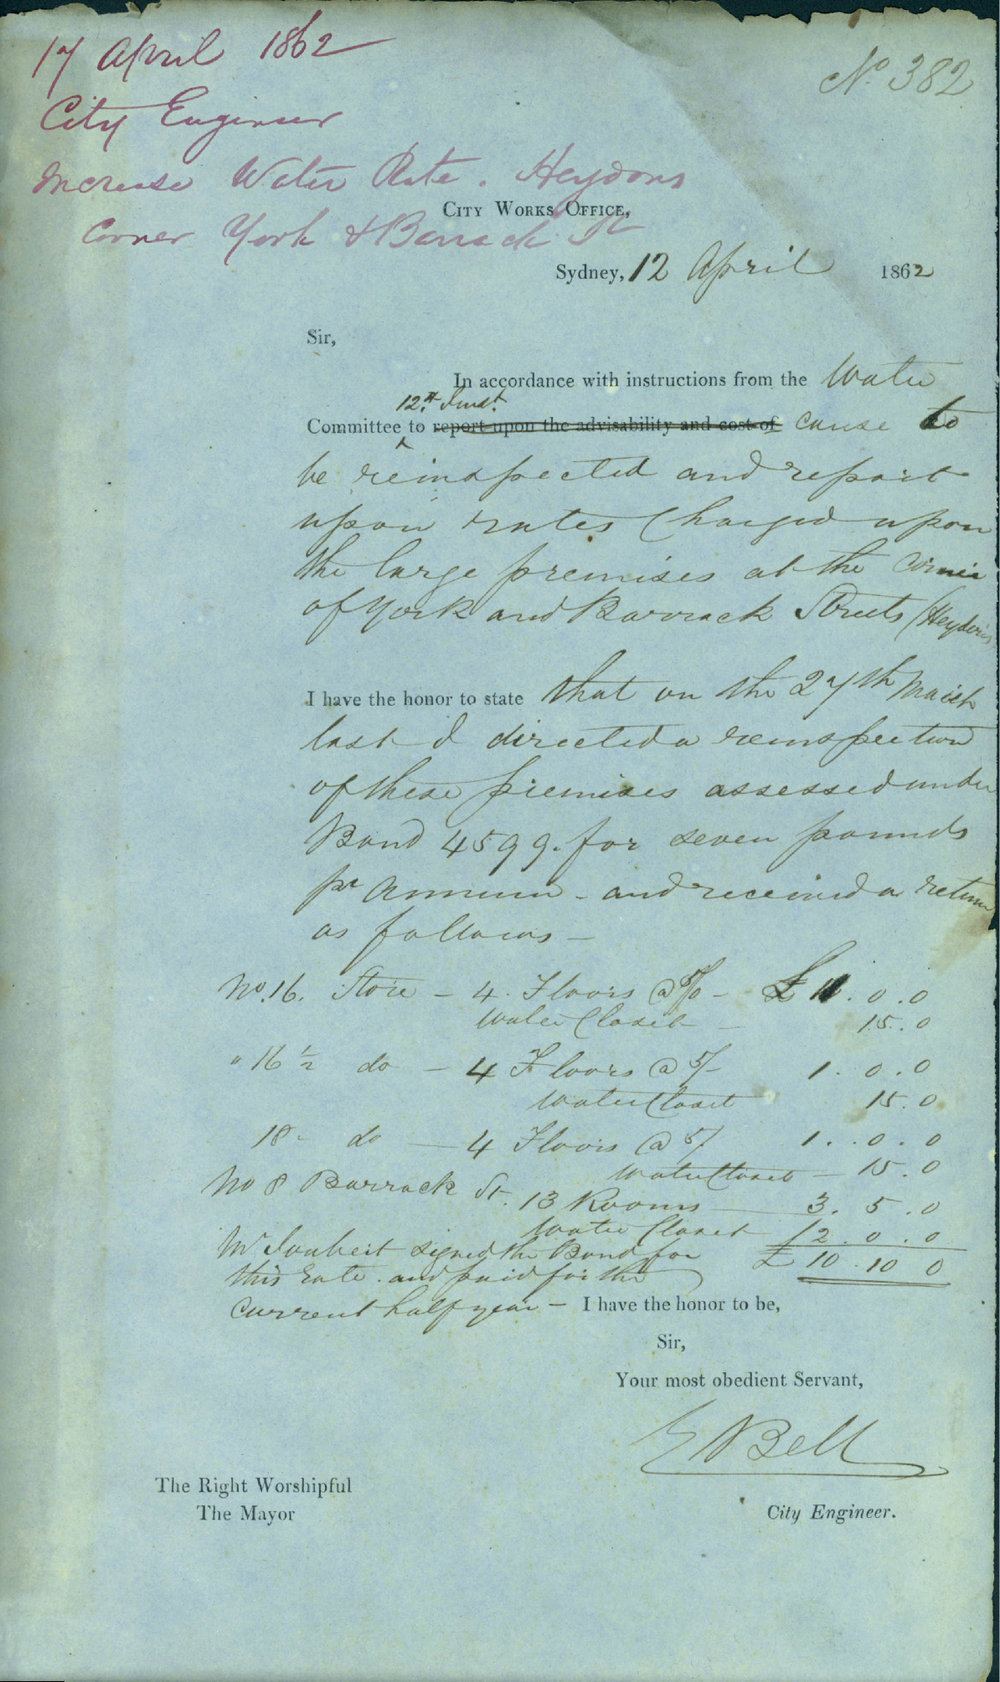 17 April 1862
No 382
City Engineer
Increase Water Rate. Heydons
Corner York & Barrack St
CITY WORKS OFFICE,
Sydney, 12 April 1862
Sir,
In accordance with instructions from the Water
12th Inst.
Committee to report upon the advisability and cost of cause to
be reinspected and report
upon rates Charged upon
the large premises at the Corner
of York and Barrack Streets (Heydons
I have the honor to state that on the 27th March
last I directed a reinspection
of these premises assessed under
Bond 4599. for seven pounds
pr Annum - and received a return
as follows -
No. 16. Store - 4 Floors @ 5/- £ 1.0.0
Water Closet - 15.0
" 16 1/2 do - 4 Floors @ 5/- 1.0.0
Water Closet 15.0
18 - do - 4 Floors @ 5/ 1.0.0
Water Closet - 15.0
No 8 Barrack St. 13 Rooms 3.5.0
Water Closet 2.0.0
£ 10.10 0
Mr Joubert signed the Bond for
this rate. and paid for the
current half year - I have the honor to be,
Sir,
Your most obedient Servant,
E Bell
The Right Worshipful
The Mayor
City Engineer.